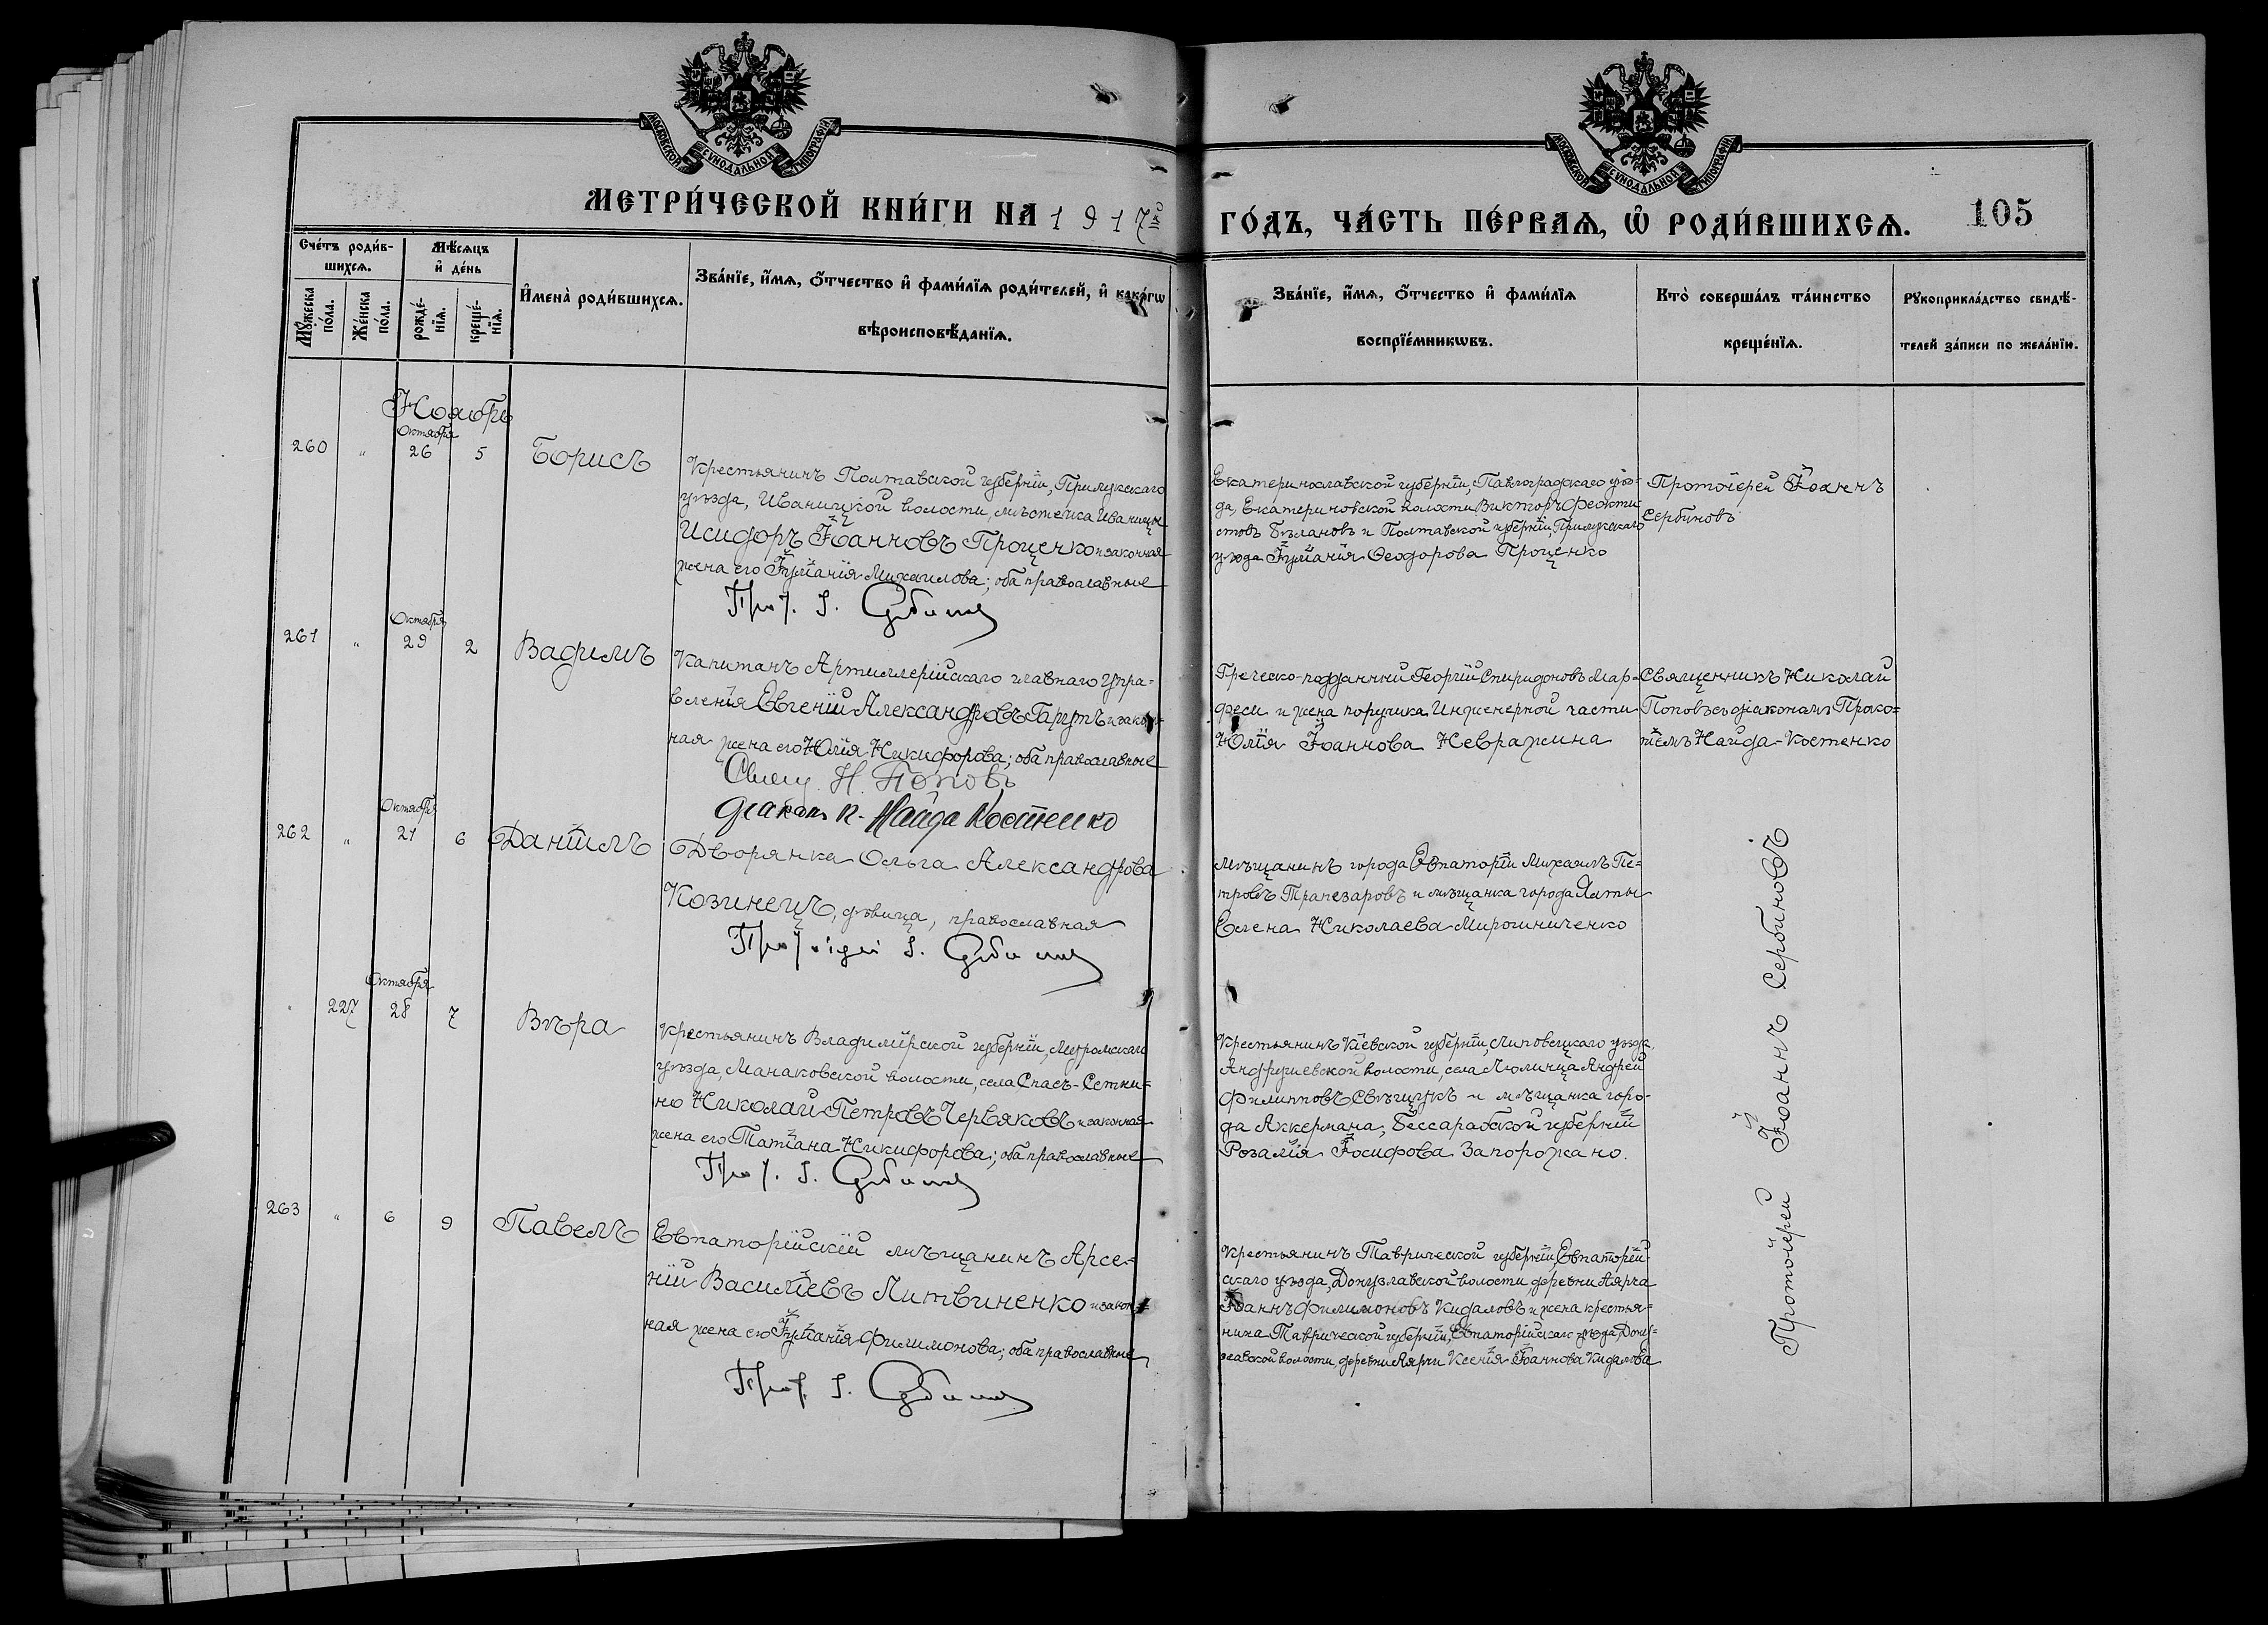 МОСКОВСКОЙ СѴНОДАЛЬНОЙ ТИПОГРАФІИ
МОСКОВСКОЙ СѴНОДАЛЬНОЙ ТИПОГРАФІИ
МЕТРИ́ЧЕСКОЙ КНИ́ГИ НА 1917й ГО́ДЪ, ЧА́СТЬ ПЕ́РВАѦ, Ѡ҆ РОДИ́ВШИХСѦ.
105
Сче́тъ роди́в-
шихсѧ.
Мꙋ́жеска
по́ла.
Же́нска
по́ла.
Мѣ́сѧцъ
и҆ де́нь
рожде́-
нїѧ.
креще́-
нїѧ.
И҆мена̀ роди́вшихсѧ.
Зва́нїе, и҆́мѧ, ѻ҆́тчество и҆ фами́лїѧ роди́телей, и҆ како́гѡ
вѣроисповѣ́данїѧ.
Зва́нїе, и҆́мѧ, ѻ҆́тчество и҆ фами́лїѧ
воспрїе́мникѡвъ.
Кто̀ соверша́лъ та́инство
креще́нїѧ.
Рꙋкоприкла́дство свидѣ́-
телей за́писи по жела́нїю.
Ноябрь
260
"
Октября
26
5
Борисъ
Крестьянинъ Полтавской губерніи, Прилукскаго
уѣзда, Иваницкой волости, мѣстечка Иваницы
Исидоръ Іоанновъ Проценко и законная
жена его Іуліанія Михаилова; оба православные
Прот. І. Сербиновъ
Екатеринославской губерніи, Павлоградскаго уѣз-
да, Екатериновской волости Викторъ Феокти
стовъ Бѣлановъ и Полтавской губерніи, Прилукскаго
уѣзда Іуліанія Ѳеодорова Проценко
Протоіерей Іоаннъ
Сербиновъ
261
"
Октября
29
2
Вадимъ
Капитанъ Артиллерійскаго главнаго Упра-
вленія Евгеній Александровъ Гаргутъ и закон-
ная жена его Юлія Никифорова; оба православные
Свящ. Н. Поповъ
Діаконъ П. Найда Костенко
Греческо-подданный Георгій Спиридоновъ Мар-
феси и жена поручика Инженерной части
Юлія Іоаннова Невражина
Священникъ Николай
Поповъ съ діакономъ Проко-
піемъ Найда-Костенко
262
"
Октября
21
6
Даніилъ
Дворянка Ольга Александрова
Козинецъ, дѣвица, православная
Протоіерей І. Сербиновъ
Мѣщанинъ города Евпаторіи Михаилъ Пе-
тровъ Трапезаровъ и мѣщанка города Ялты
Елена Николаева Мирошниченко
"
227
Октября
28
7
Вѣра
Крестьянинъ Владимірской губерніи, Муромскаго
уѣзда, Монаковской волости, села Спасъ-Сетки-
но Николай Петровъ Червяковъ и законная
жена его Татіана Никифорова; оба православные
Прот. І. Сербиновъ
Крестьянинъ Кіевской губерніи, Липовецкаго уѣзда,
Андрушевской волости, села Люлинца Андрей
Филипповъ Свѣщукъ и мѣщанка горо-
да Аккермана, Бессарабской губерніи
Розалія Іосифова Запорожано.
263
"
6
9
Павелъ
Евпаторійскій мѣщанинъ Арсе-
ній Василіевъ Литвиненко и закон-
ная жена его Іуліанія Филимонова; оба православные
Прот. І. Сербиновъ
Крестьянинъ Таврической губерніи, Евпаторій
скаго уѣзда, Донузлавской волости, деревни Аярча
Іоаннъ Филимоновъ Кидаловъ и жена крестья-
нина Таврической губерніи, Евпаторійскаго уѣзда, Дону-
злавской волости, деревни Аярчи Ксенія Іоаннова Кидалова
Протоіерей Іоаннъ Сербиновъ